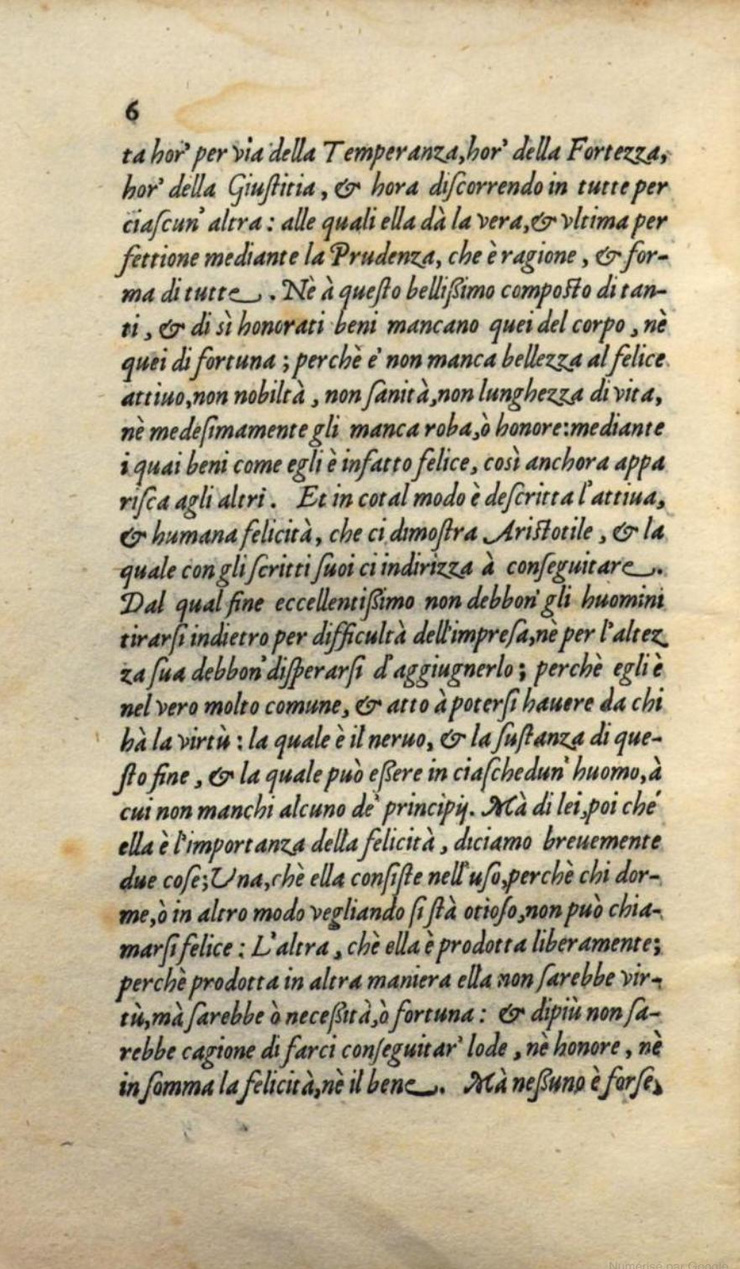 6
ta hor' per via della Temperanza, hor' della Fortezza,
hor' della Giuſtitia, & hora diſcorrendo in tutte per
ciaſcun' altra: alle quali ella dà la vera, & vltima per
fettione mediante la Prudenza, che è ragione, & for-
ma di tutte. Nè à queſto belliſſimo compoſto di tan-
ti, & di sì honorati beni mancano quei del corpo, nè
quei di fortuna; perchè e' non manca bellezza al felice
attiuo, non nobiltà, non ſanità, non lunghezza di vita,
nè medeſimamente gli manca roba, ò honore: mediante
i quai beni come egli è infatto felice, così anchora appa
riſca agli altri. Et in cotal modo è deſcritta l'attiua,
& humana felicità, che ci dimoſtra Ariſtotile, & la
quale con gli ſcritti ſuoi ci indirizza à conſeguitare.
Dal qual fine eccellentiſſimo non debbon' gli huomini
tirarſi indietro per difficultà dell'impreſa, nè per l'altez
za ſua debbon' diſperarſi d'aggiugnerlo; perchè egli è
nel vero molto comune, & atto à poterſi hauere da chi
hà la virtù: la quale è il neruo, & la ſuſtanza di que-
ſto fine, & la quale può eſſere in ciaſchedun' huomo, à
cui non manchi alcuno de' principij. Mà di lei, poi ché
ella è l'importanza della felicità, diciamo breuemente
due coſe; Una, chè ella conſiſte nell'uſo, perchè chi dor-
me, ò in altro modo vegliando ſi ſtà otioſo, non può chia-
marſi felice: L'altra, chè ella è prodotta liberamente;
perchè prodotta in altra maniera ella non ſarebbe vir-
tù, mà ſarebbe ò neceſſità, ò fortuna: & dipiù non ſa-
rebbe cagione di farci conſeguitar' lode, nè honore, nè
in ſomma la felicità, nè il bene. Mà neſſuno è forſe,
Numérisé par Google